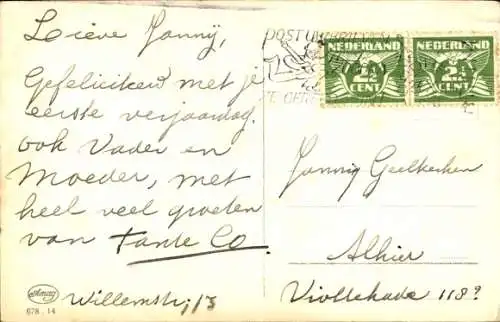 Lieve Jannij,
Gefeliciteerd met je
eerste verjaardag
ook Vader en
Moeder, met
heel veel groeten
van Tante Co.
Willemstr. 13
Amag
678 - 14
POST
NEDERLAND
2½
CENT
NEDERLAND
2½
CENT
Jannij Geelkerken
Alhier
118